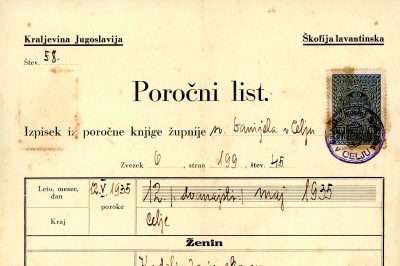 Kraljevina Jugoslavija
Škofija lavantinska
Štev. 58.
Poročni list.
Izpisek iz poročne knjige župnije sv. Danijela v Celju
Zvezek 6, stran 199, štev. 45
Leto, mesec, dan
12. V. 1935
poroke
12. maj 1935
Kraj
Celje
Ženin
V CELJU